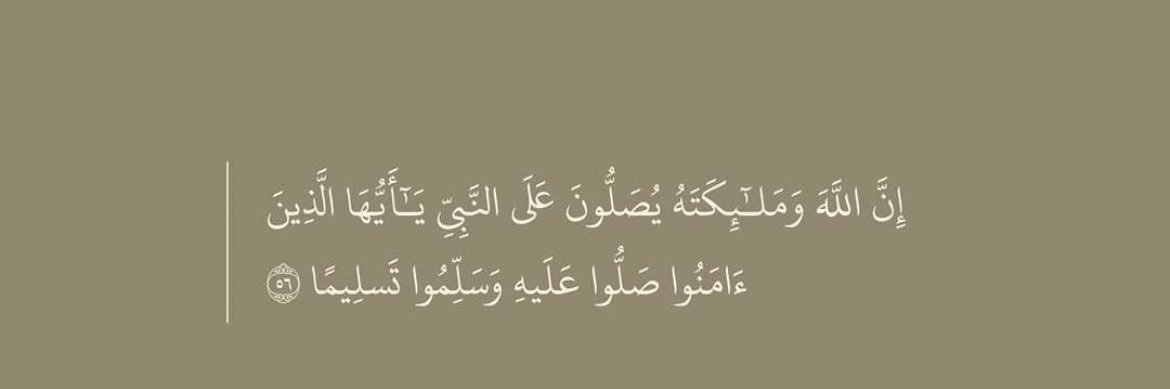 إِنَّ اللَّهَ وَمَلَـٰٓئِكَتَهُ يُصَلُّونَ عَلَى النَّبِيِّ يَـٰٓأَيُّهَا الَّذِينَ
ءَامَنُوا صَلُّوا عَلَيهِ وَسَلِّمُوا تَسلِيمًا ٥٦